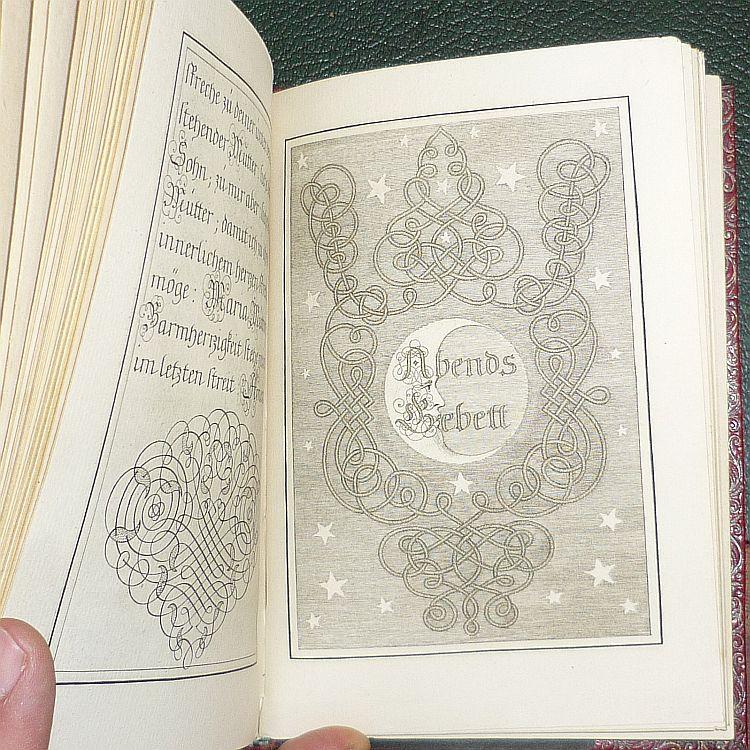 spreche zu deiner
stehender Mutter
Sohn; zu mir aber
Mutter, damit ich
innerlichem hertzen
möge: Maria
Barmhertzigkeit
im letzten streit
Abends
Gebett